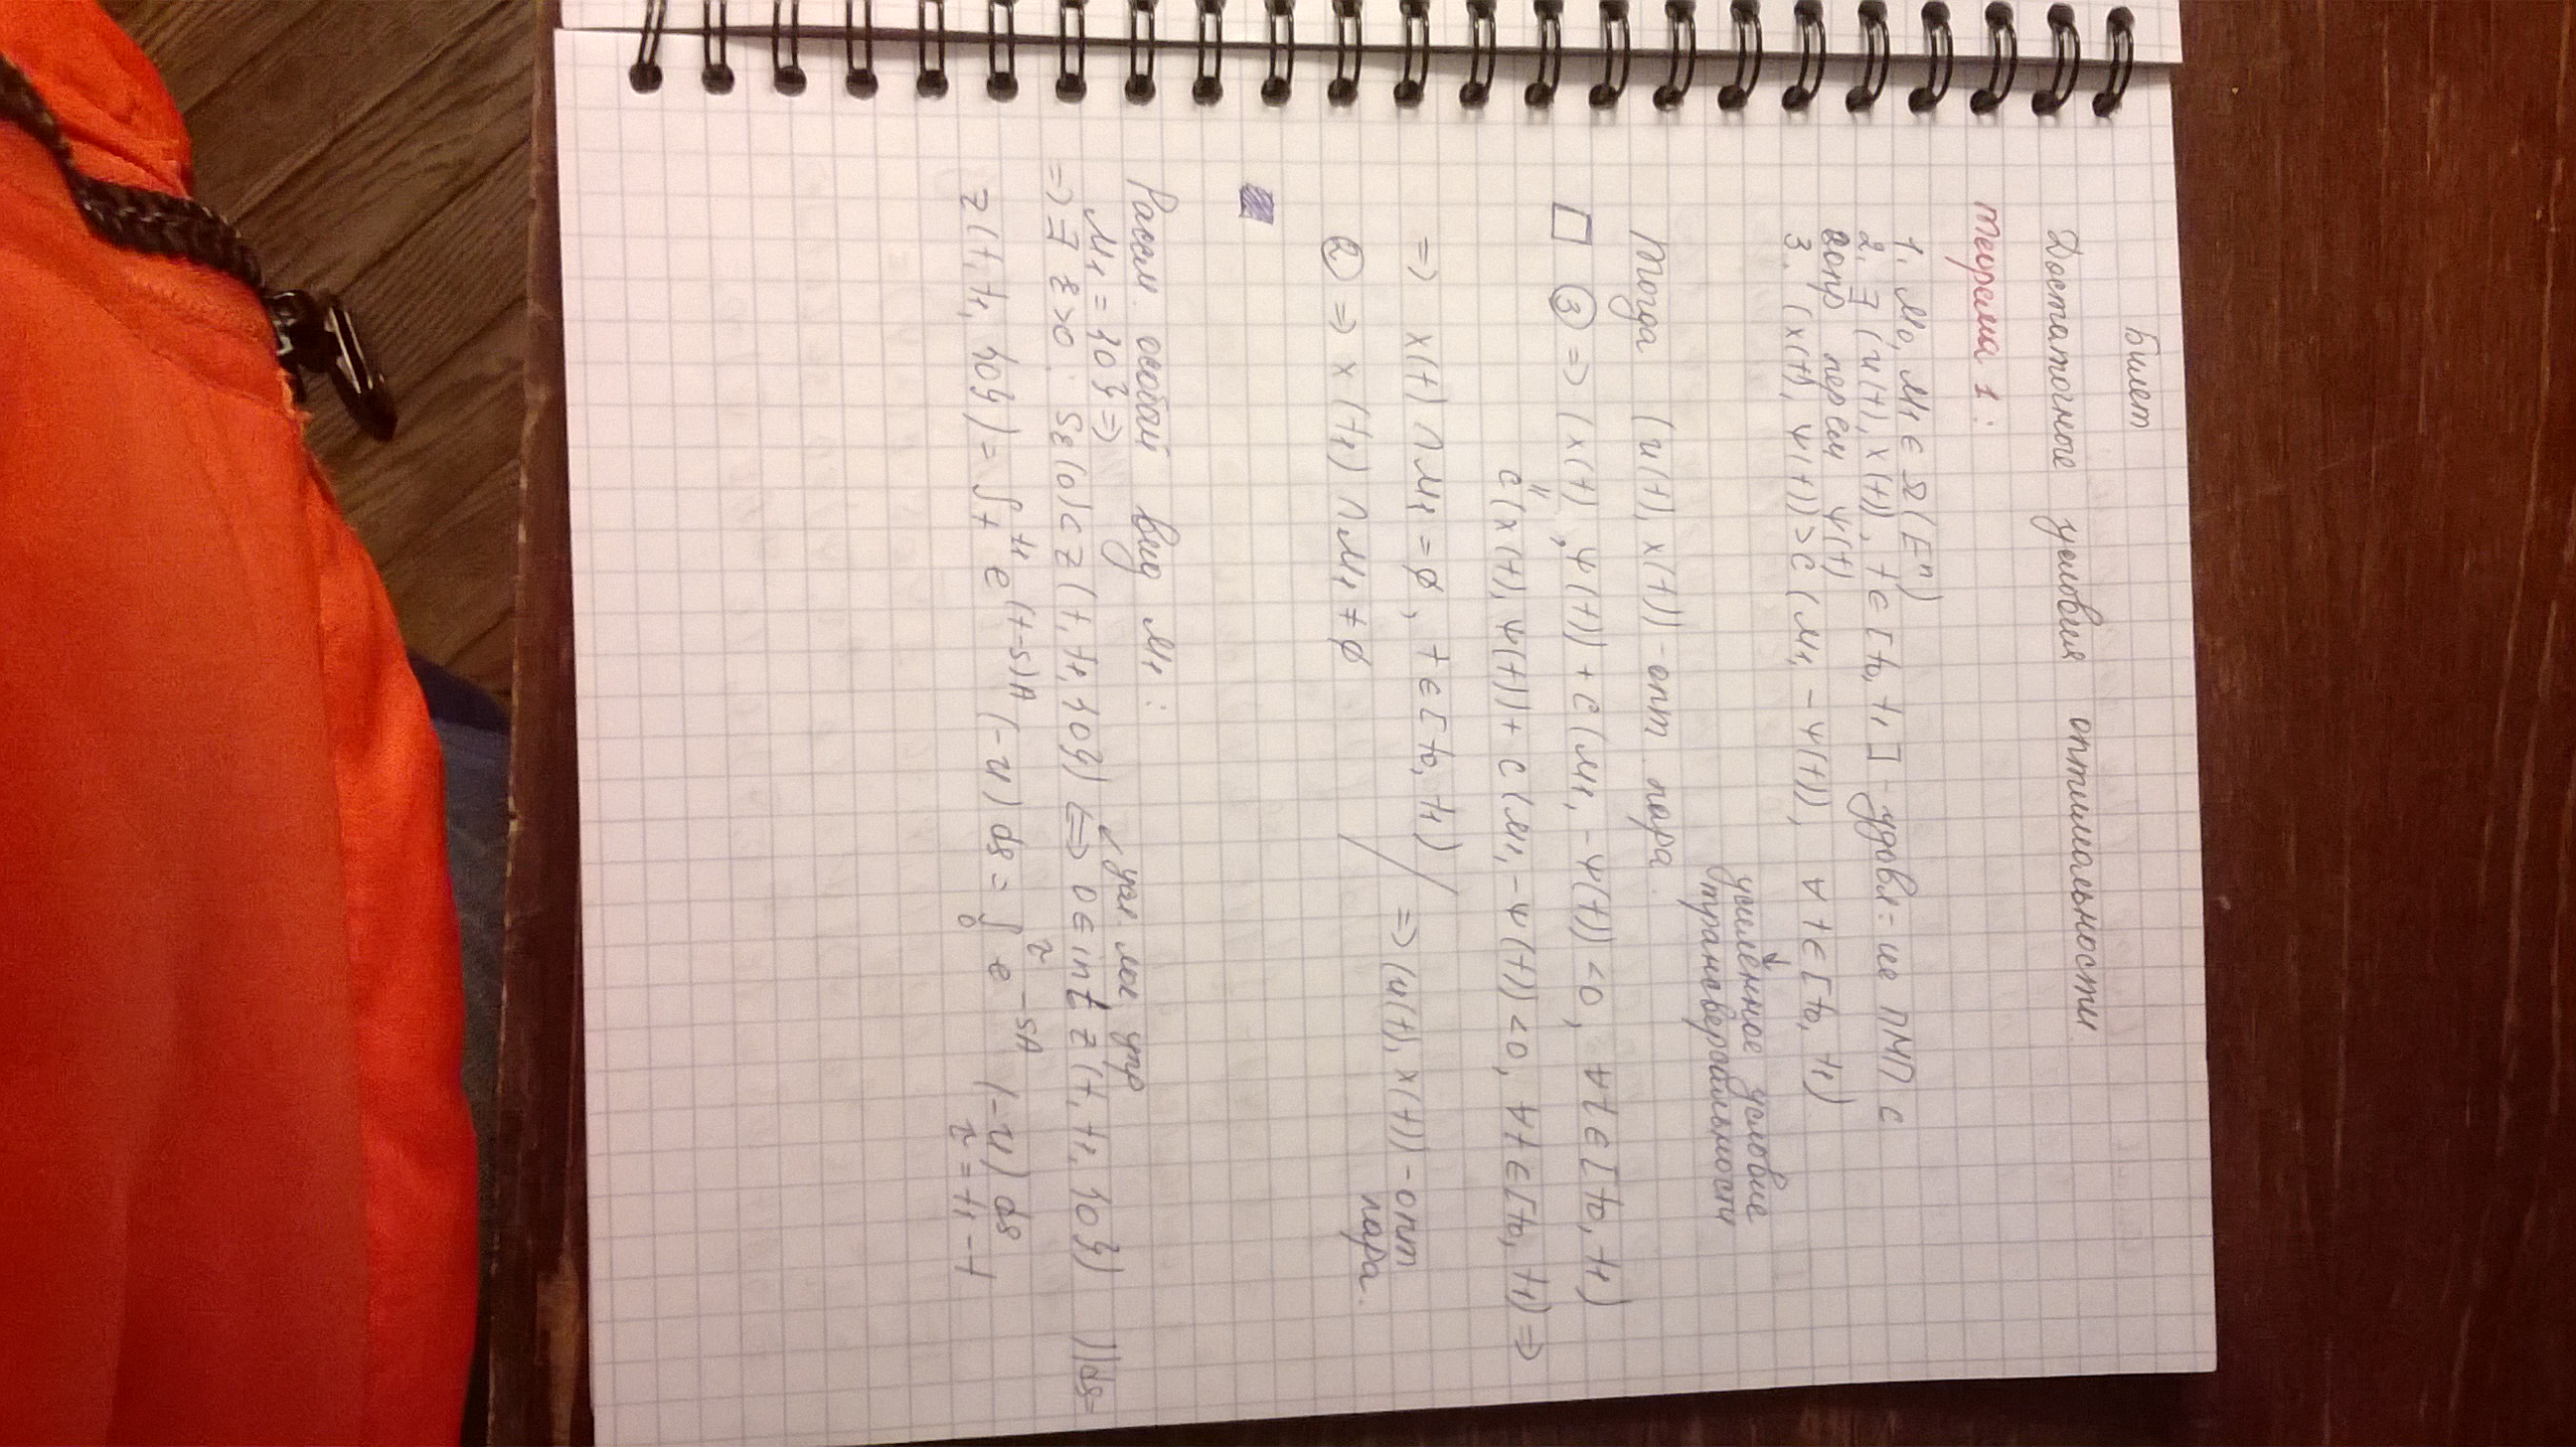 Билет
Достаточные условия оптимальности.
Теорема 1:
1. M₀, M₁ ∈ Ω(Eⁿ)
2. ∃ (u(t), x(t)), t ∈ [t₀, t₁] - удовл-ие ПМП с
сопр перем ψ(t)
3. (x(t), ψ(t)) > C (M₁, -ψ(t)), ∀ t ∈ [t₀, t₁)
усиленное условие
трансверсальности
Тогда (u(t), x(t)) - опт. пара.
□ ③ => (x(t), ψ(t)) + C(M₁, -ψ(t)) < 0, ∀t ∈ [t₀, t₁)
"
C(x(t), ψ(t)) + C(M₁, -ψ(t)) < 0, ∀t ∈ [t₀, t₁) =>
=> x(t) ∩ M₁ = ∅, t ∈ [t₀, t₁)
=> (u(t), x(t)) - опт
пара.
② => x(t₁) ∩ M₁ ≠ ∅
Рассм. особый вид M₁:
M₁ = {0} =>
лок упр
=> ∃ ε>0 : Sε(0) ⊂ Z(t, t₁, {0}) <=> 0 ∈ int Z(t, t₁, {0}) ||ds=
Z(t, t₁, {0}) = ∫ₜᵗ¹ e^(t-s)A (-u) ds = ∫₀^τ e^-sA (-u) ds
τ = t₁ - t